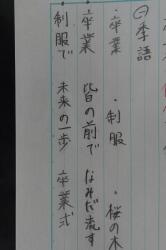 ㊀季語
・卒業 ・制服 ・桜の木
・卒業 皆の前で なみだ流す
・制服で 未来の一歩 卒業式